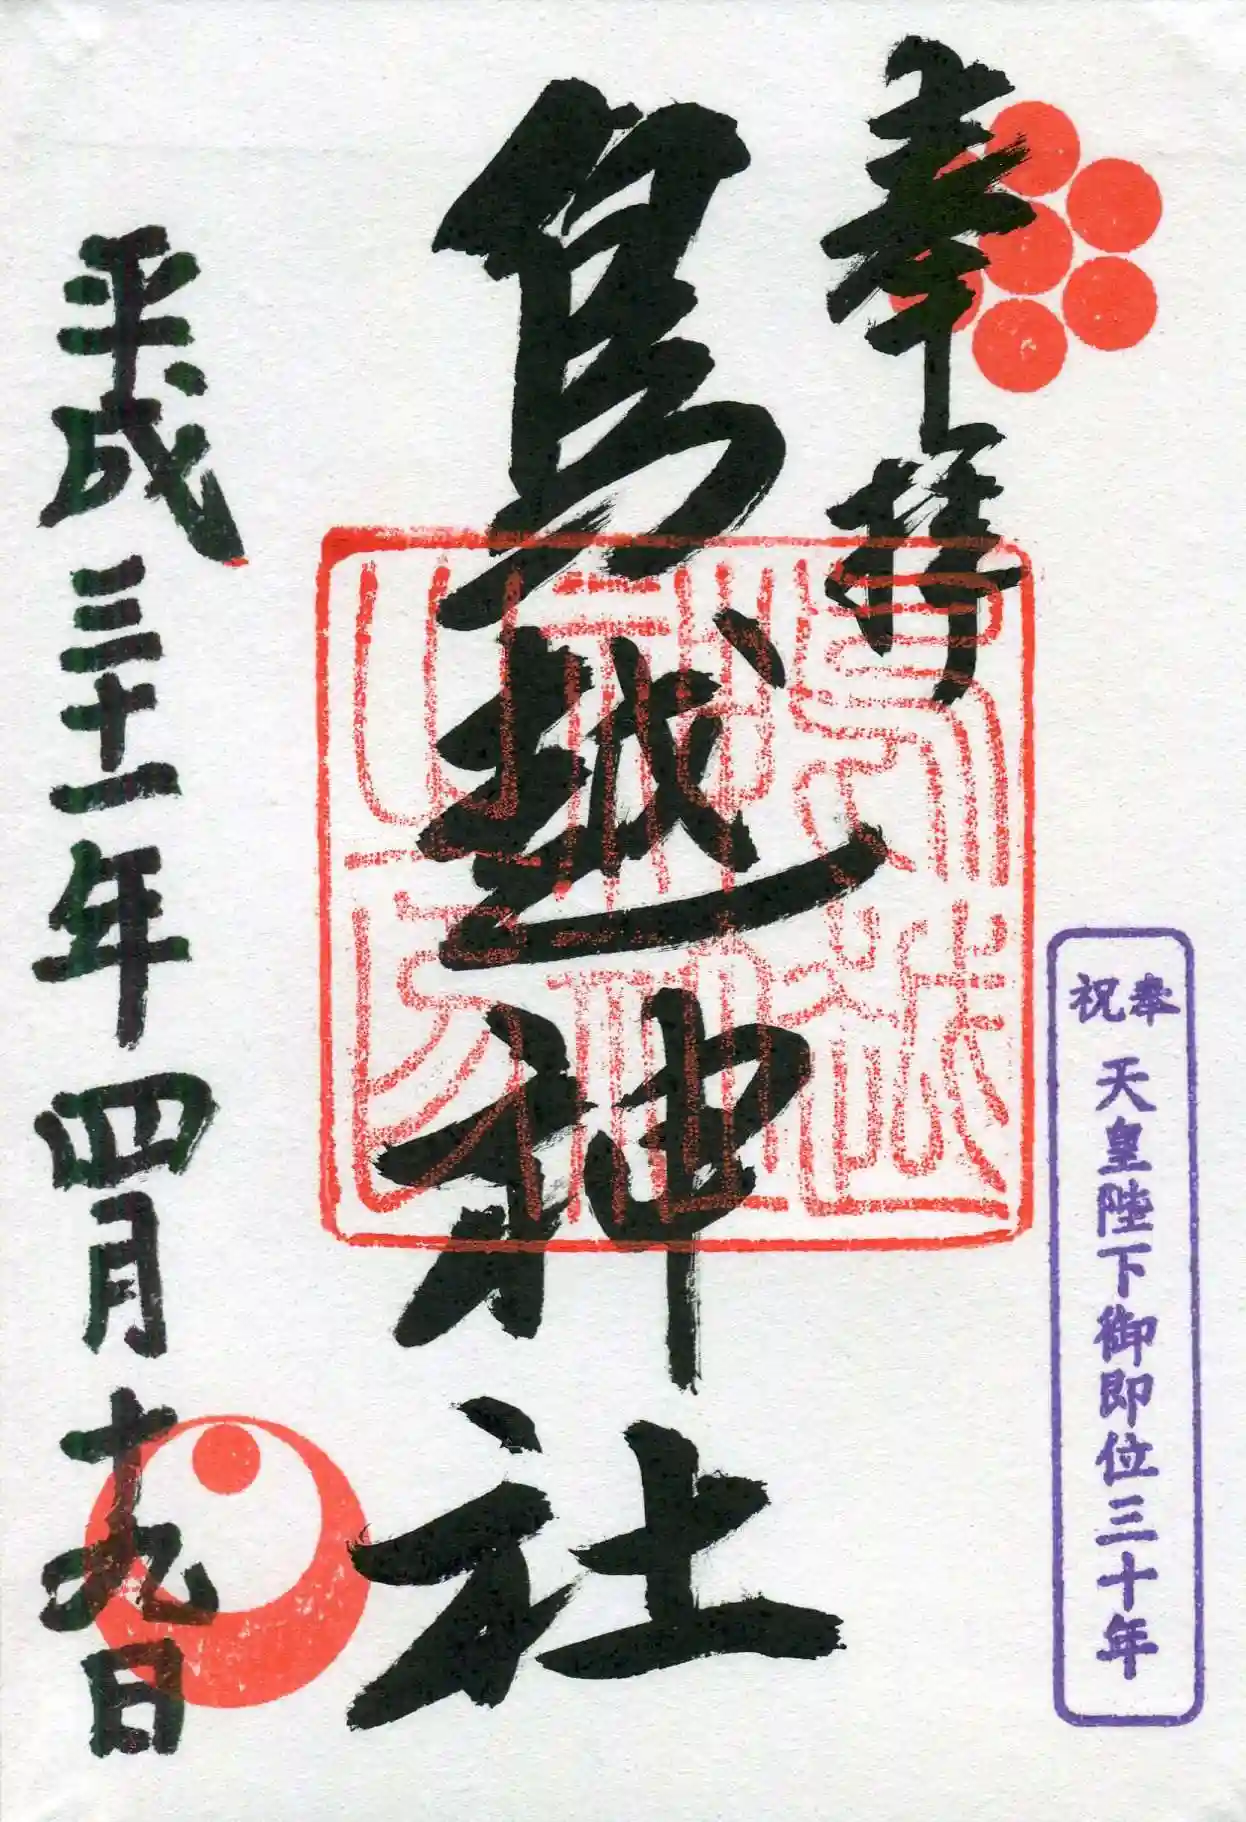 奉拝
奉祝
天皇陛下御即位三十年
鳥越神社
鳥越
神社
之印
平成三十一年四月十九日